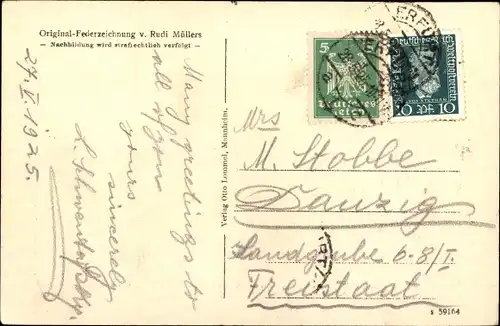 Original-Federzeichnung v. Rudi Müllers
— Nachbildung wird strafrechtlich verfolgt —
27.V.1925.
Many greetings to
all of you
yours
sincerely
Verlag Otto Lommel, Mannheim.
5
Deutsches
Reich
ERFURT
10 Pf. 10
Mrs
M. Stobbe
Danzig
Landgrube 6-8/I.
Freistaat
s 59164